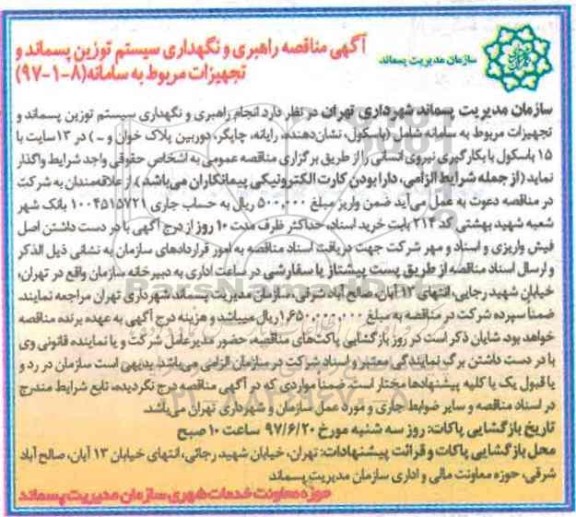 سازمان مدیریت پسماند
آگهی مناقصه راهبری و نگهداری سیستم توزین پسماند و
تجهیزات مربوط به سامانه(۸-۱-۹۷)
سازمان مدیریت پسماند شهرداری تهران در نظر دارد انجام راهبری و نگهداری سیستم توزین پسماند و
تجهیزات مربوط به سامانه شامل (باسکول، نشان‌دهنده، رایانه، چاپگر، دوربین پلاک خوان و ...) در ۱۳ سایت با
۱۵ باسکول با بکارگیری نیروی انسانی را از طریق برگزاری مناقصه عمومی به اشخاص حقوقی واجد شرایط واگذار
نماید (از جمله شرایط الزامی، دارا بودن کارت الکترونیکی پیمانکاران می‌باشد). از علاقمندان به شرکت
در مناقصه دعوت به عمل می‌آید ضمن واریز مبلغ ۵۰۰,۰۰۰ ریال به حساب جاری ۱۰۰۴۵۱۵۷۲۱ بانک شهر
شعبه شهید بهشتی کد ۲۱۴ بابت خرید اسناد، حداکثر ظرف مدت ۱۰ روز از درج آگهی با در دست داشتن اصل
فیش واریزی و اسناد و مهر شرکت جهت دریافت اسناد مناقصه به امور قراردادهای سازمان به نشانی ذیل الذکر
و ارسال اسناد مناقصه از طریق پست پیشتاز یا سفارشی در ساعت اداری به دبیرخانه سازمان واقع در تهران،
خیابان شهید رجایی، انتهای ۱۳ آبان، صالح آباد شرقی، سازمان مدیریت پسماند شهرداری تهران مراجعه نمایند.
ضمناً سپرده شرکت در مناقصه به مبلغ ۱,۶۵۰,۰۰۰,۰۰۰ ریال میباشد و هزینه درج آگهی به عهده برنده مناقصه
خواهد بود. شایان ذکر است در روز بازگشایی پاکت‌های مناقصه، حضور مدیرعامل شرکت و یا نماینده قانونی وی
با در دست داشتن برگ نمایندگی معتبر و اسناد شرکت در سازمان الزامی می‌باشد. بدیهی است سازمان در رد و
یا قبول یک یا کلیه پیشنهادها مختار است. ضمناً مواردی که در آگهی مناقصه درج نگردیده، تابع شرایط مندرج
در اسناد مناقصه و سایر ضوابط جاری و مورد عمل سازمان و شهرداری تهران می‌باشد.
تاریخ بازگشایی پاکات: روز سه شنبه مورخ ۹۷/۶/۲۰ ساعت ۱۰ صبح
محل بازگشایی پاکات و قرائت پیشنهادات: تهران، خیابان شهید رجائی، انتهای خیابان ۱۳ آبان، صالح آباد
شرقی، حوزه معاونت مالی و اداری سازمان مدیریت پسماند
حوزه معاونت خدمات شهری سازمان مدیریت پسماند
ParsNamadData